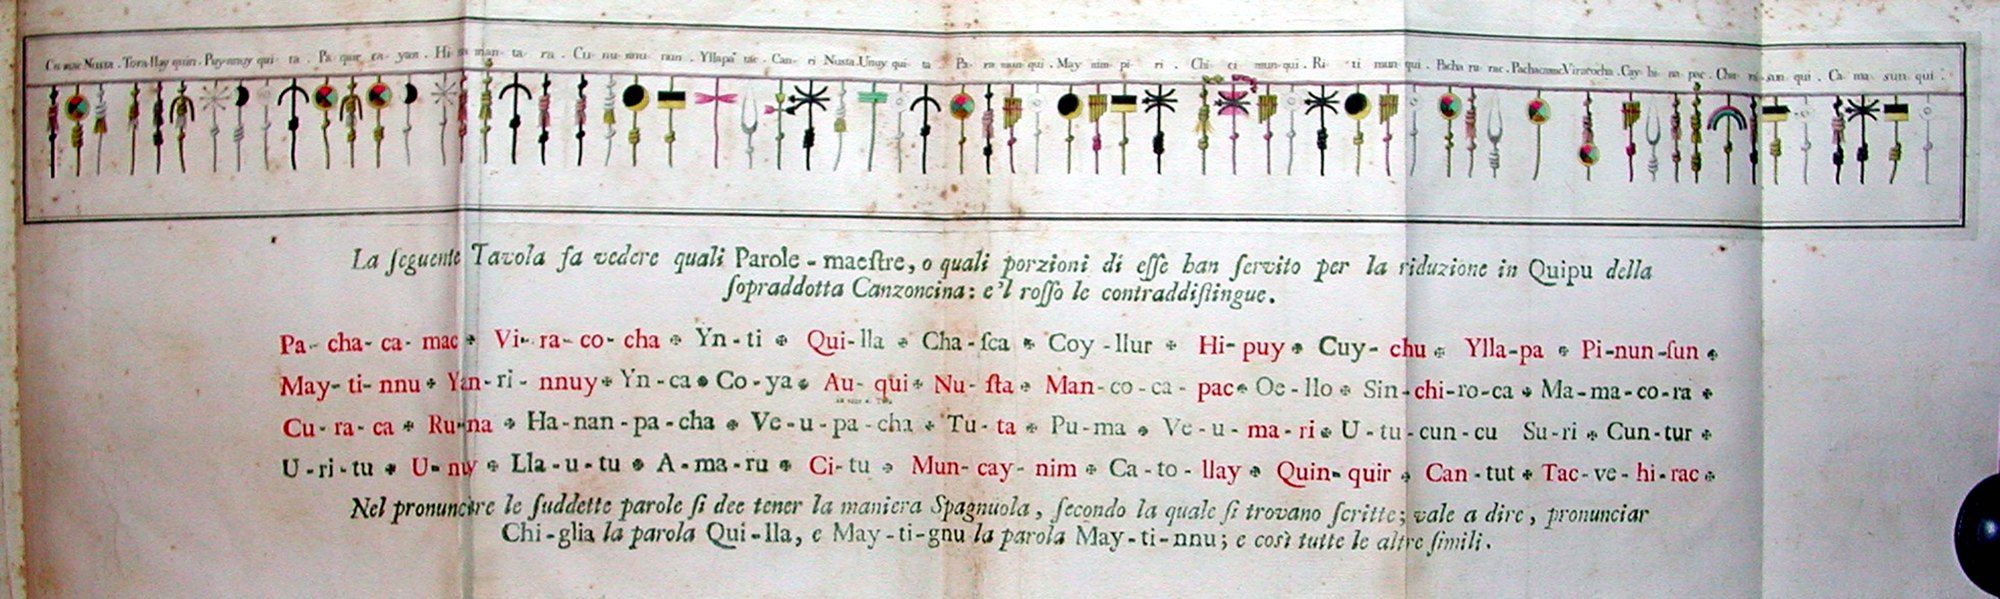 Cu mac Nusta . Tora llay quin . Puy nnuy qui - ta . Pa que ca - yan . Hi na man - ta - ra . Cu - nu - nnu - nun . Ylla pa n tac . Can - ri Nusta . Unuy qui - ta . Pa - ra mun qui . May nim pi - ri . Chi - ci mun - qui . Ri - ti mun qui . Pacha ru - rac . Pachacamac Viracocha . Cay hi - na pac . Chu - ra - sun - qui . Ca - ma - sun - qui .
La ſeguente Tavola fa vedere quali Parole - maeſtre, o quali porzioni di eſſe han ſervito per la riduzione in Quipu della
ſopraddotta Canzoncina: e'l roſſo le contraddiſtingue.
Pa - cha - ca - mac * Vi - ra - co - cha * Yn - ti * Qui - lla * Cha - ſca * Coy - llur * Hi - puy * Cuy - chu * Ylla - pa * Pi - nun - ſun *
May - ti - nnu * Yan - ri - nnuy * Yn - ca * Co - ya * Au - qui * Nu - ſta * Man - co - ca - pac * Oe - llo * Sin - chi - ro - ca * Ma - ma - co - ra *
Cu - ra - ca * Ru - na * Ha - nan - pa - cha * Ve - u - pa - cha * Tu - ta * Pu - ma * Ve - u - ma - ri * U - tu - cun - cu Su - ri * Cun - tur *
U - ri - tu * U - nuy * Lla - u - tu * A - ma - ru * Ci - tu * Mun - cay - nim * Ca - to - llay * Quin - quir * Can - tut * Tac - ve - hi - rac *
Nel pronunciare le ſuddette parole ſi dee tener la maniera Spagnuola, ſecondo la quale ſi trovano ſcritte; vale a dire, pronunciar
Chi - glia la parola Qui - lla, e May - ti - gnu la parola May - ti - nnu; e così tutte le altre ſimili.